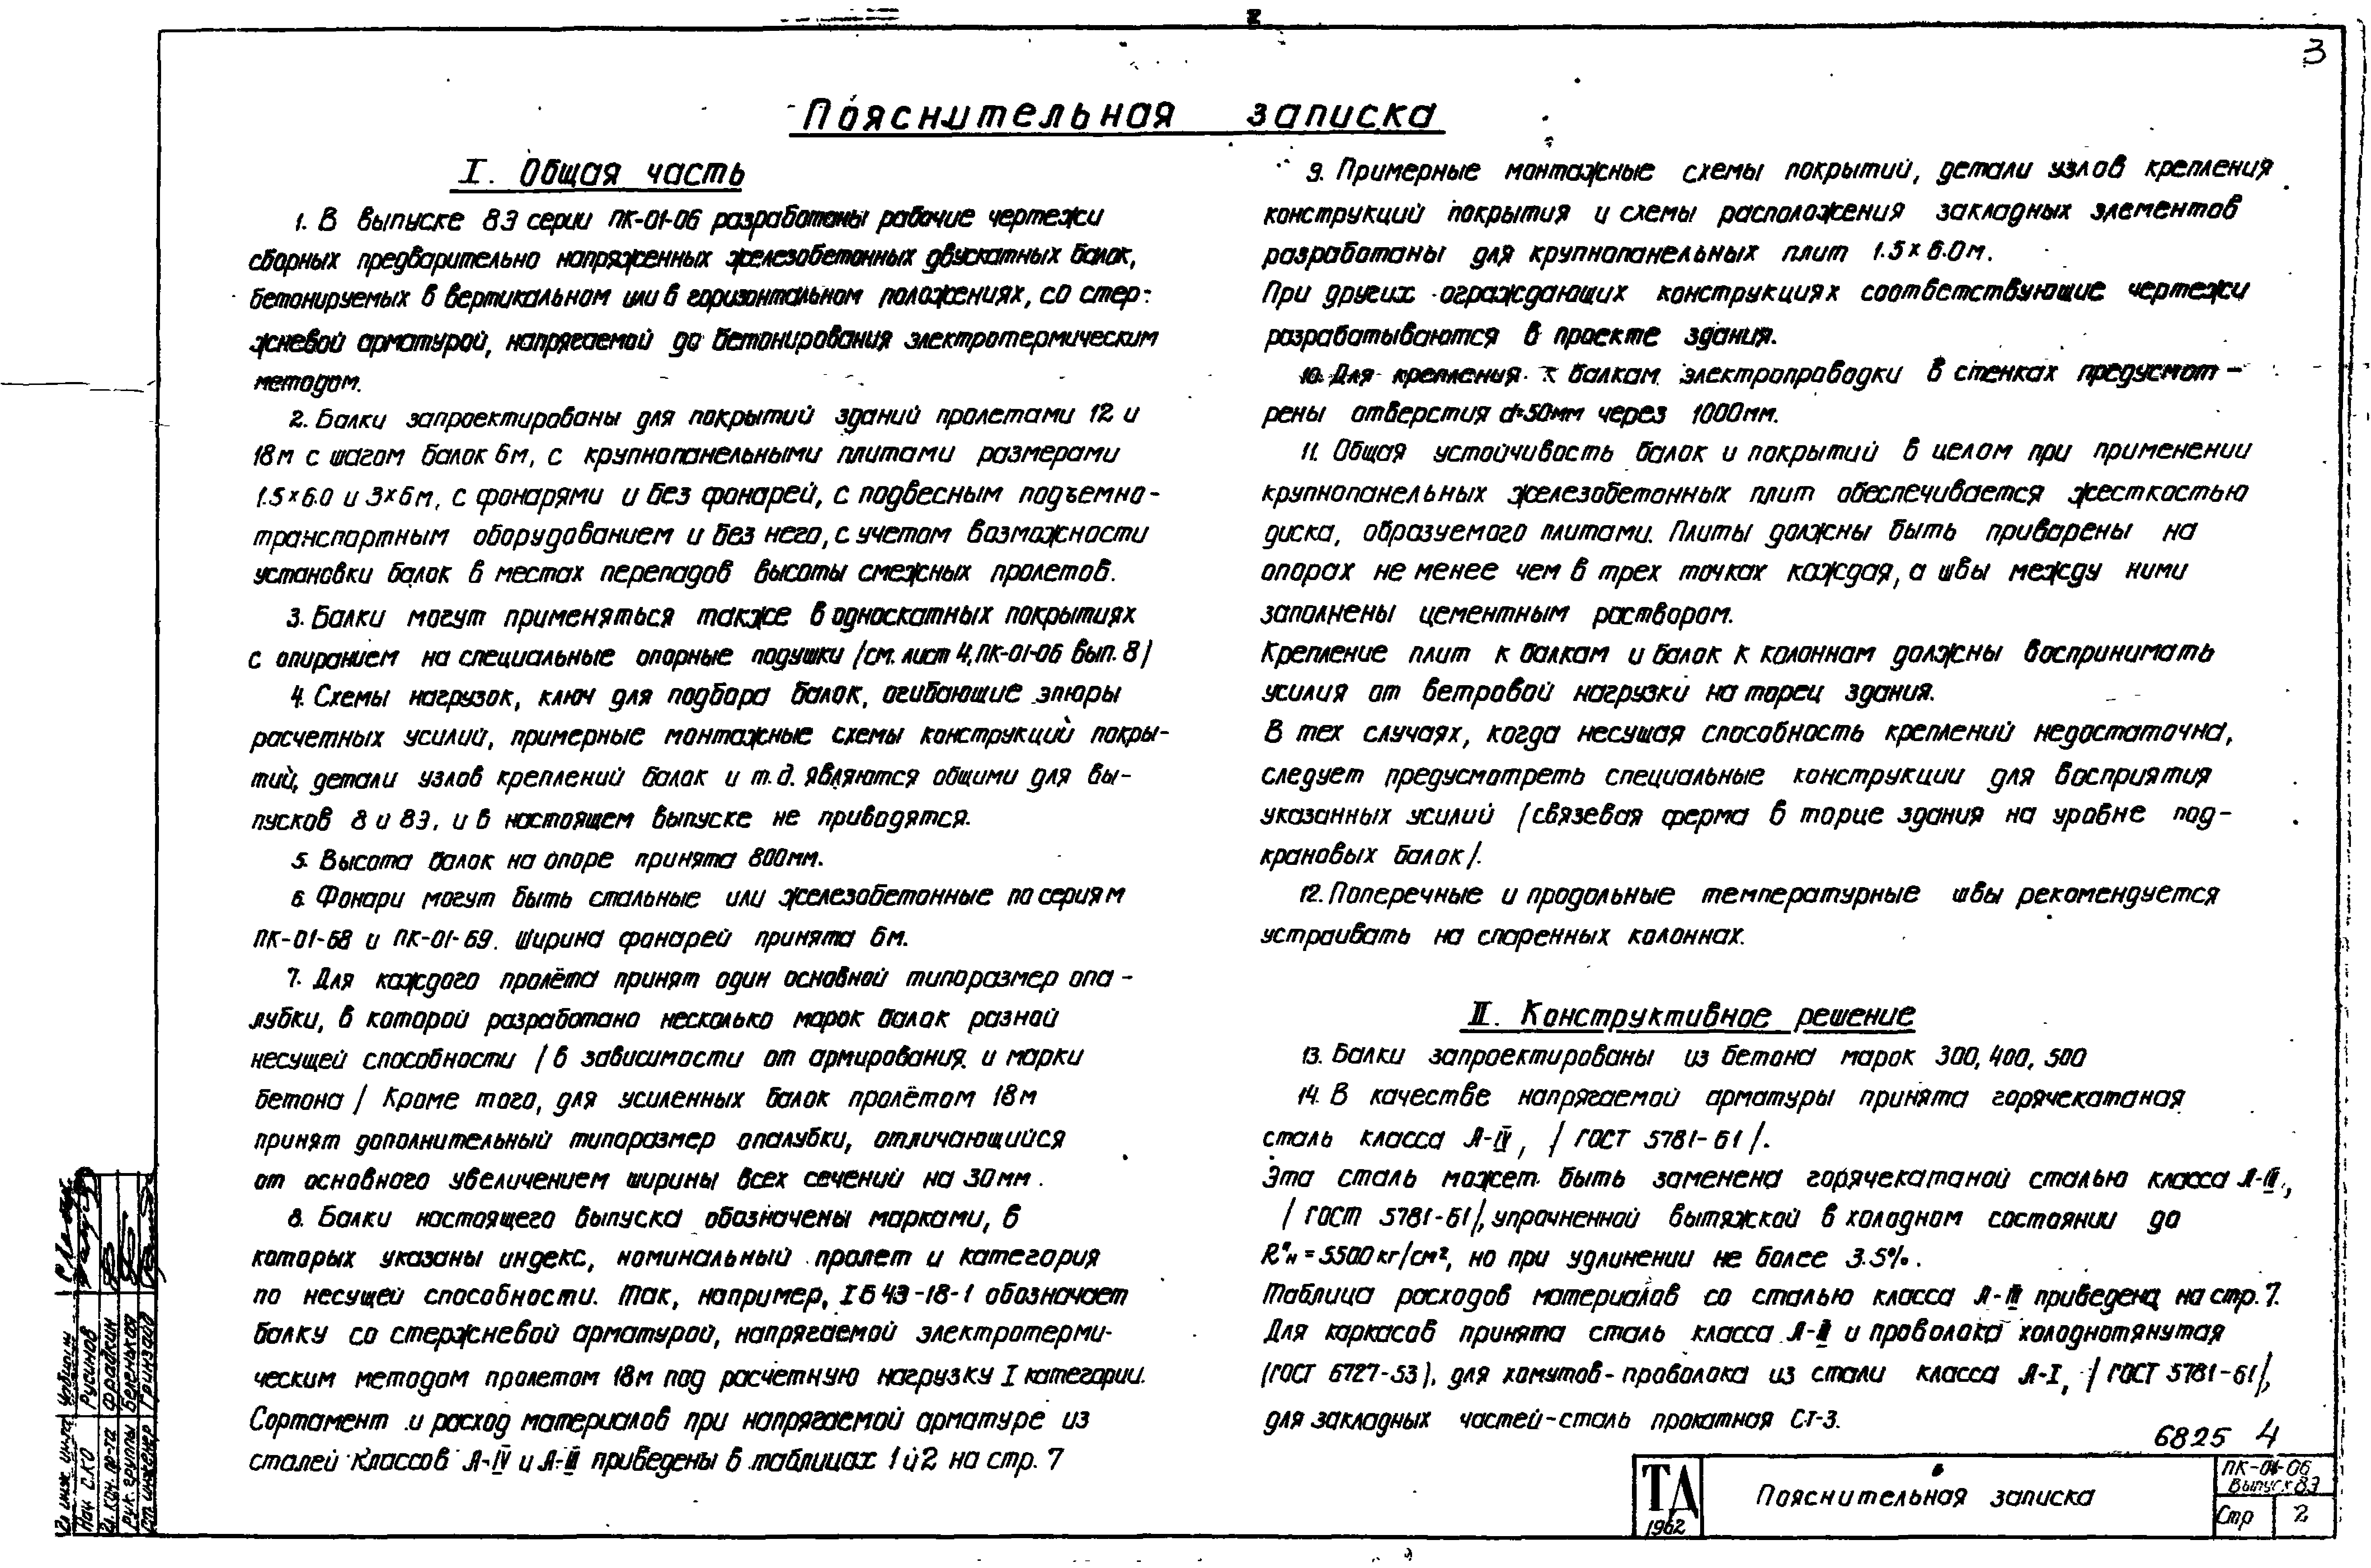 3
Пояснительная записка
I. Общая часть
1. В выпуске 8Э серии ПК-01-06 разработаны рабочие чертежи
сборных предварительно напряженных железобетонных двускатных балок,
бетонируемых в вертикальном или в горизонтальном положениях, со стер-
жневой арматурой, напрягаемой до бетонирования электротермическим
методом.
2. Балки запроектированы для покрытий зданий пролетами 12 и
18м с шагом балок 6м, с крупнопанельными плитами размерами
1.5×6.0 и 3×6м, с фонарями и без фонарей, с подвесным подъемно-
транспортным оборудованием и без него, с учетом возможности
установки балок в местах перепадов высоты смежных пролетов.
3. Балки могут применяться также в односкатных покрытиях
с опиранием на специальные опорные подушки /см. лист 4, ПК-01-06 вып. 8/
4. Схемы нагрузок, ключ для подбора балок, огибающие эпюры
расчетных усилий, примерные монтажные схемы конструкций покры-
тий, детали узлов креплений балок и т.д. являются общими для вы-
пусков 8 и 8Э, и в настоящем выпуске не приводятся.
5. Высота балок на опоре принята 800мм.
6. Фонари могут быть стальные или железобетонные по сериям
ПК-01-68 и ПК-01-69. Ширина фонарей принята 6м.
7. Для каждого пролёта принят один основной типоразмер опа-
лубки, в которой разработано несколько марок балок разной
несущей способности /в зависимости от армирования и марки
бетона/ Кроме того, для усиленных балок пролётом 18м
принят дополнительный типоразмер опалубки, отличающийся
от основного увеличением ширины всех сечений на 30мм.
8. Балки настоящего выпуска обозначены марками, в
которых указаны индекс, номинальный пролет и категория
по несущей способности. Так, например, IБ4Э-18-1 обозначает
балку со стержневой арматурой, напрягаемой электротерми-
ческим методом пролетом 18м под расчетную нагрузку I категории.
Сортамент и расход материалов при напрягаемой арматуре из
сталей классов А-IV и А-III приведены в таблицах 1 и 2 на стр. 7
9. Примерные монтажные схемы покрытий, детали узлов крепления
конструкций покрытия и схемы расположения закладных элементов
разработаны для крупнопанельных плит 1.5×6.0м.
При других ограждающих конструкциях соответствующие чертежи
разрабатываются в проекте здания.
10. Для крепления к балкам электропроводки в стенках предусмот-
рены отверстия d=50мм через 1000мм.
11. Общая устойчивость балок и покрытий в целом при применении
крупнопанельных железобетонных плит обеспечивается жесткостью
диска, образуемого плитами. Плиты должны быть приварены на
опорах не менее чем в трех точках каждая, а швы между ними
заполнены цементным раствором.
Крепление плит к балкам и балок к колоннам должны воспринимать
усилия от ветровой нагрузки на торец здания.
В тех случаях, когда несущая способность креплений недостаточна,
следует предусмотреть специальные конструкции для восприятия
указанных усилий /связевая ферма в торце здания на уровне под-
крановых балок/.
12. Поперечные и продольные температурные швы рекомендуется
устраивать на спаренных колоннах.
II. Конструктивное решение
13. Балки запроектированы из бетона марок 300, 400, 500
14. В качестве напрягаемой арматуры принята горячекатаная
сталь класса А-IV, /ГОСТ 5781-61/.
Эта сталь может быть заменена горячекатаной сталью класса А-III,
/ГОСТ 5781-61/, упрочненной вытяжкой в холодном состоянии до
Rᵃн = 5500 кг/см², но при удлинении не более 3.5%.
Таблица расходов материалов со сталью класса А-III приведена на стр. 7.
Для каркасов принята сталь класса А-II и проволока холоднотянутая
(ГОСТ 6727-53), для хомутов - проволока из стали класса А-I, /ГОСТ 5781-61/,
для закладных частей - сталь прокатная Ст-3.
6825 4
ТА
1962
Пояснительная записка
ПК-01-06
Выпуск 8Э
Стр 2
Гл. инж. ин-та
Нач. СКО Русинов
Гл. кон. пр-та Фрадкин
Рук. группы Беленькая
Ст. инженер Гринзайд